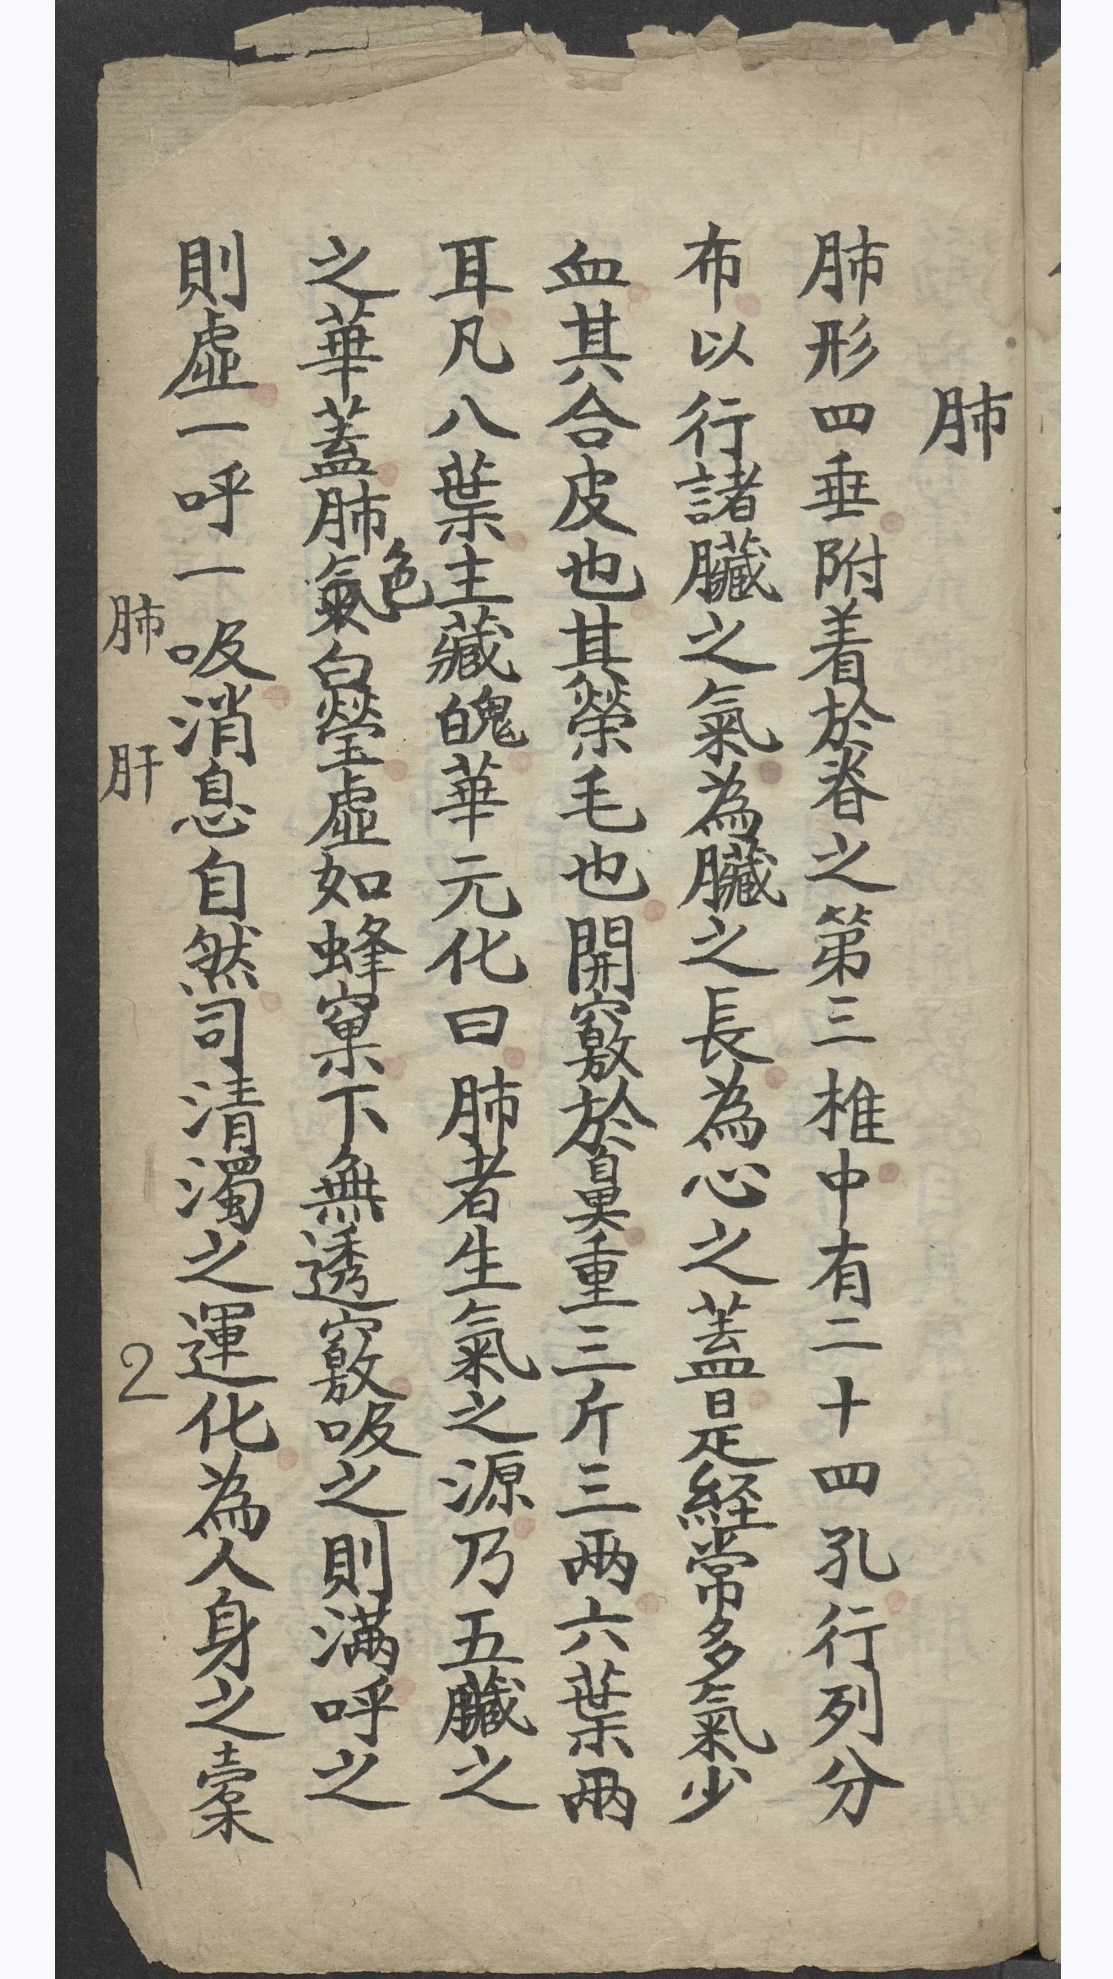 肺
肺形四垂附着於脊之第三椎中有二十四孔行列分
布以行諸臓之氣為臓之長為心之蓋是經常多氣少
血其合皮也其榮毛也開竅於鼻重三斤三两六葉两
耳凡八葉主藏魄華元化曰肺者生氣之源乃五臓之
之華蓋肺色氣白瑩虛如蜂窠下無透竅吸之則满呼之
則虛一呼一吸消息自然司清濁之運化為人身之橐
肺 肝 2